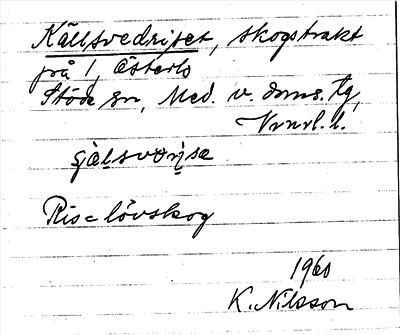 Källsvedriset, skogstrakt
på 1, Österlo
Stöde sn, Med. v. doms. tg,
Vrnl. l.
Ris = lövskog
1960
K. Nilsson